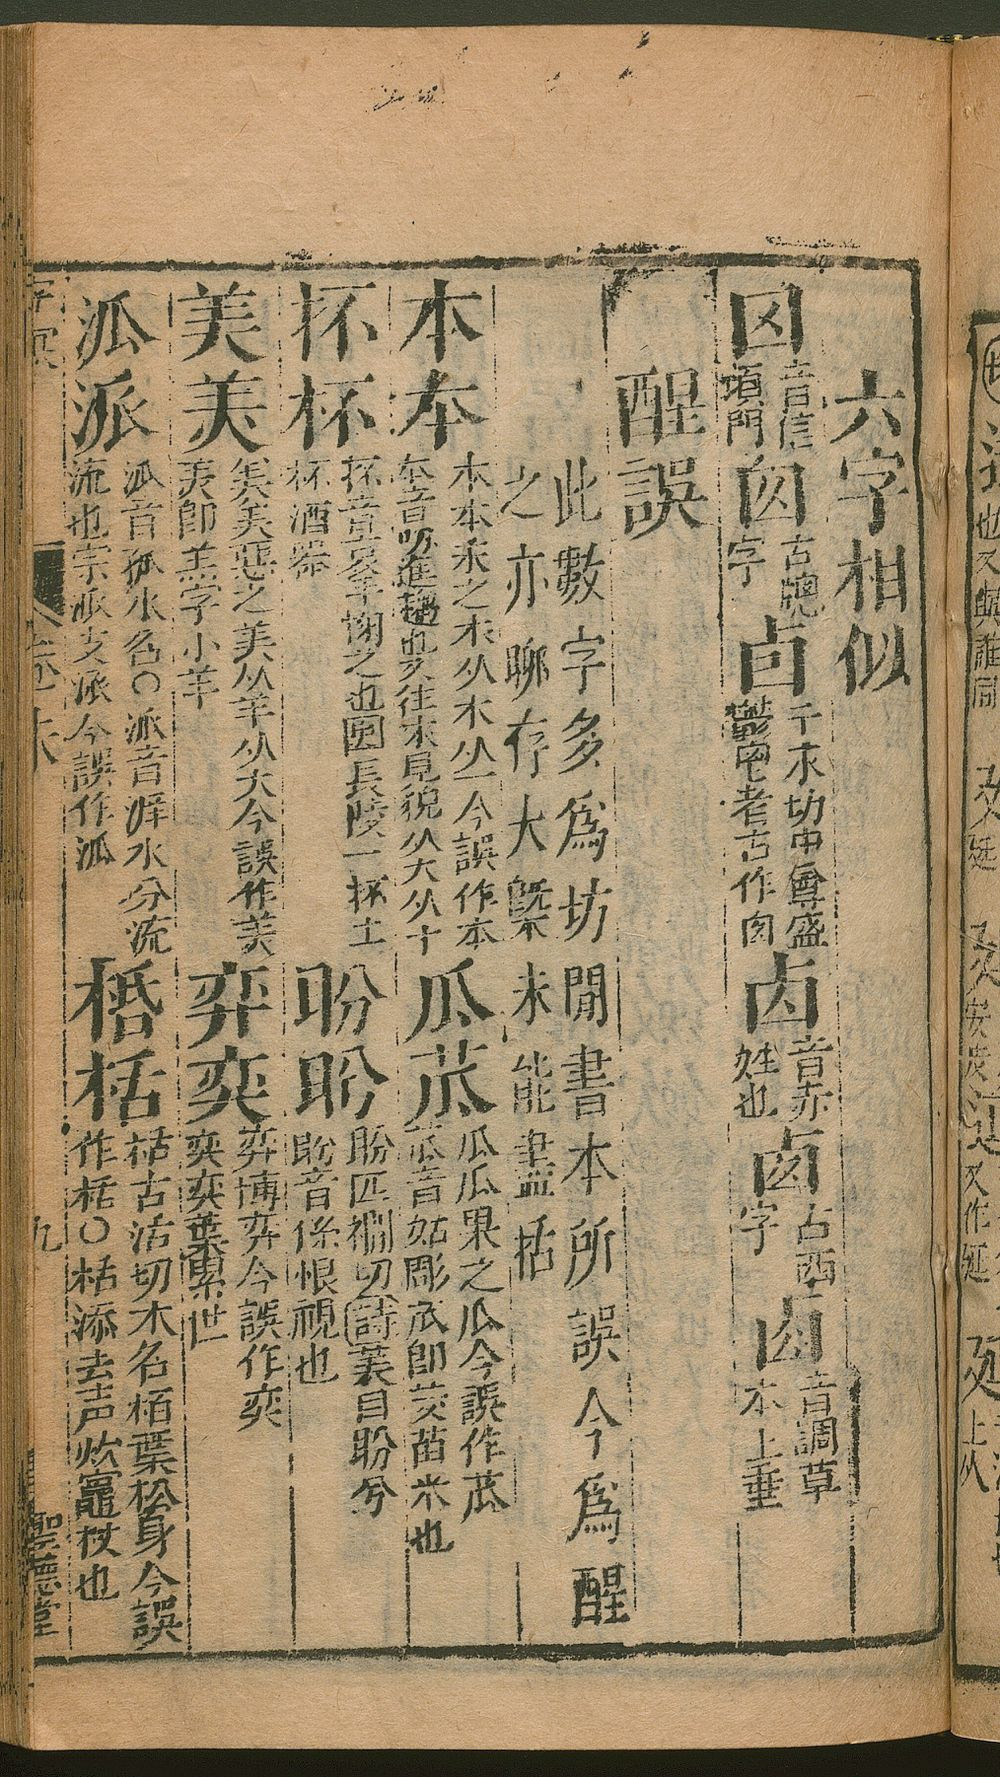 六字相似
囟音信頂門囱古牕字卣千求切中尊盛鬱鬯者古作卣㔽音赤姓也卤古西字𠧪音調草木上垂
醒誤
此數字多爲坊閒書本所誤今爲醒
之亦聊存大槩未能盡括
本夲本本末之本从木从一今誤作本夲音叨進趨也又往來見貌从大从十
瓜苽瓜瓜果之瓜今誤作苽苽音姑彫苽即茭苗米也
抔杯抔音裒手掬之也圓長陵一抔土杯酒器
盼盻盼匹襉切詩美目盼兮盻音係恨視也
美羙美美惡之美从羊从大今誤作羙羙即羔字小羊
弈奕弈博弈今誤作奕奕奕葉累世
泒派泒音孤水名○派音湃水分流流也宗派支派今誤作泒
栝栝古活切木名栢葉松身今誤作栝○栝添去声炊竈杖也
九
聖德堂